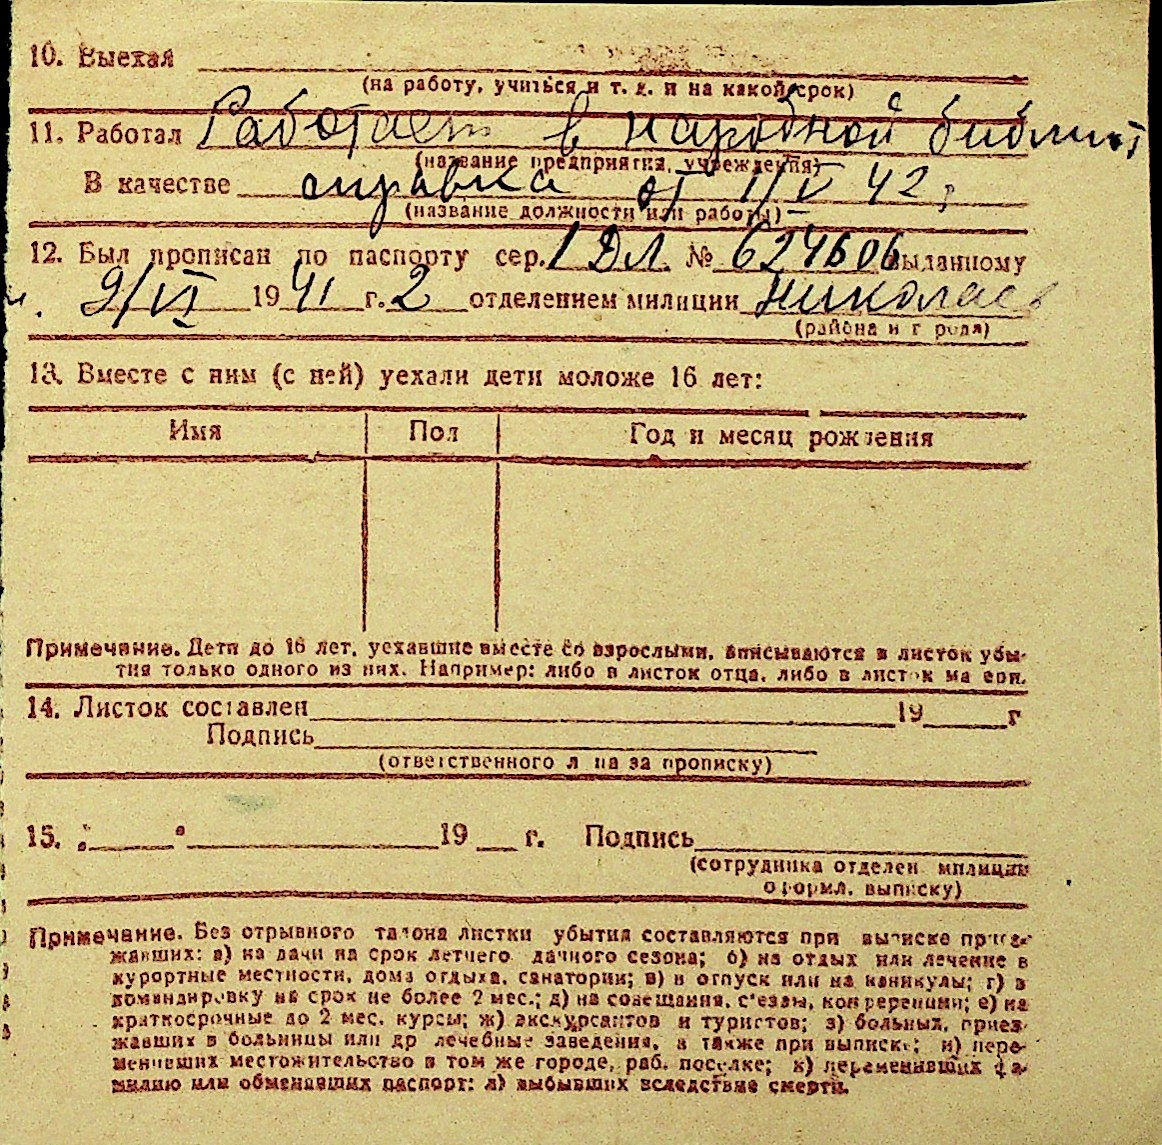 10. Выехал
(на работу, учиться и т. д. и на какой срок)
11. Работал Работает в народной библиот
(название предприятия, учреждения)
В качестве справка от 1/V 42,
(название должности или работы)
12. Был прописан по паспорту сер. 1 ДЛ № 624606 выданному
9/VI 1941 г. 2 отделением милиции Николаев
(района и г рода)
13. Вместе с ним (с ней) уехали дети моложе 16 лет:
Имя Пол Год и месяц рождения
Примечание. Дети до 16 лет, уехавшие вместе со взрослыми, вписываются в листок убы-
тия только одного из них. Например: либо в листок отца, либо в листок ма ери.
14. Листок составлен 19 г
Подпись
(ответственного л ца за прописку)
15. " " 19 г. Подпись
(сотрудника отделен милиции
оформл. выписку)
Примечание. Без отрывного талона листки убытия составляются при выписке приез-
жавших: а) на дачи на срок летнего дачного сезона; б) на отдых или лечение в
курортные местности, дома отдыха, санатории; в) в отпуск или на каникулы; г) в
командировку на срок не более 2 мес.; д) на совещания, с'езды, конференции; е) на
краткосрочные до 2 мес. курсы; ж) экскурсантов и туристов; з) больных, приез-
жавших в больницы или др лечебные заведения, а также при выписке; и) пере-
менивших местожительство в том же городе, раб. поселке; к) переменивших фа-
милию или обменявших паспорт; л) выбывших вследствие смерти.